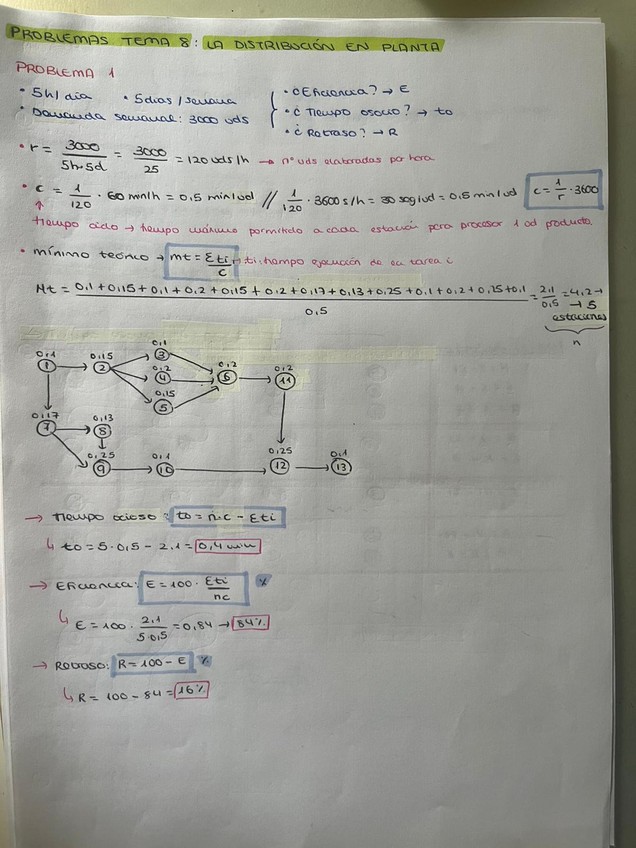 PROBLEMAS TEMA 8: LA DISTRIBUCIÓN EN PLANTA
PROBLEMA 1
• 5h/día • 5días/semana
• Demanda semanal: 3000 uds
• ¿Eficiencia? → E
• ¿Tiempo ocioso? → to
• ¿Retraso? → R
• r = 3000/5h·5d = 3000/25 = 120 uds/h → nº uds elaboradas por hora
• c = 1/120 · 60 min/h = 0,5 min/ud // 1/120 · 3600 s/h = 30 seg/ud = 0,5 min/ud c = 1/r · 3600
tiempo ciclo → tiempo máximo permitido a cada estación para procesar 1 ud producto.
• mínimo teórico → mt = Σti/c ti: tiempo ejecución de la tarea i
Mt = 0,1 + 0,15 + 0,1 + 0,2 + 0,15 + 0,2 + 0,17 + 0,13 + 0,25 + 0,1 + 0,2 + 0,25 + 0,1 / 0,5 = 2,1/0,5 = 4,2 →
→ 5
estaciones
n
0,1
0,1 0,15 3 0,2 0,2
1 2 0,2 6 11
4
0,15
5
0,17 0,13
7 8
0,25 0,1 0,25 0,1
9 10 12 13
→ Tiempo ocioso: to = n·c - Σti
↳ to = 5·0,5 - 2,1 = 0,4 min
→ Eficiencia: E = 100 · Σti/nc %
↳ E = 100 · 2,1/5·0,5 = 0,84 → 84%
→ Retraso: R = 100 - E %
↳ R = 100 - 84 = 16%